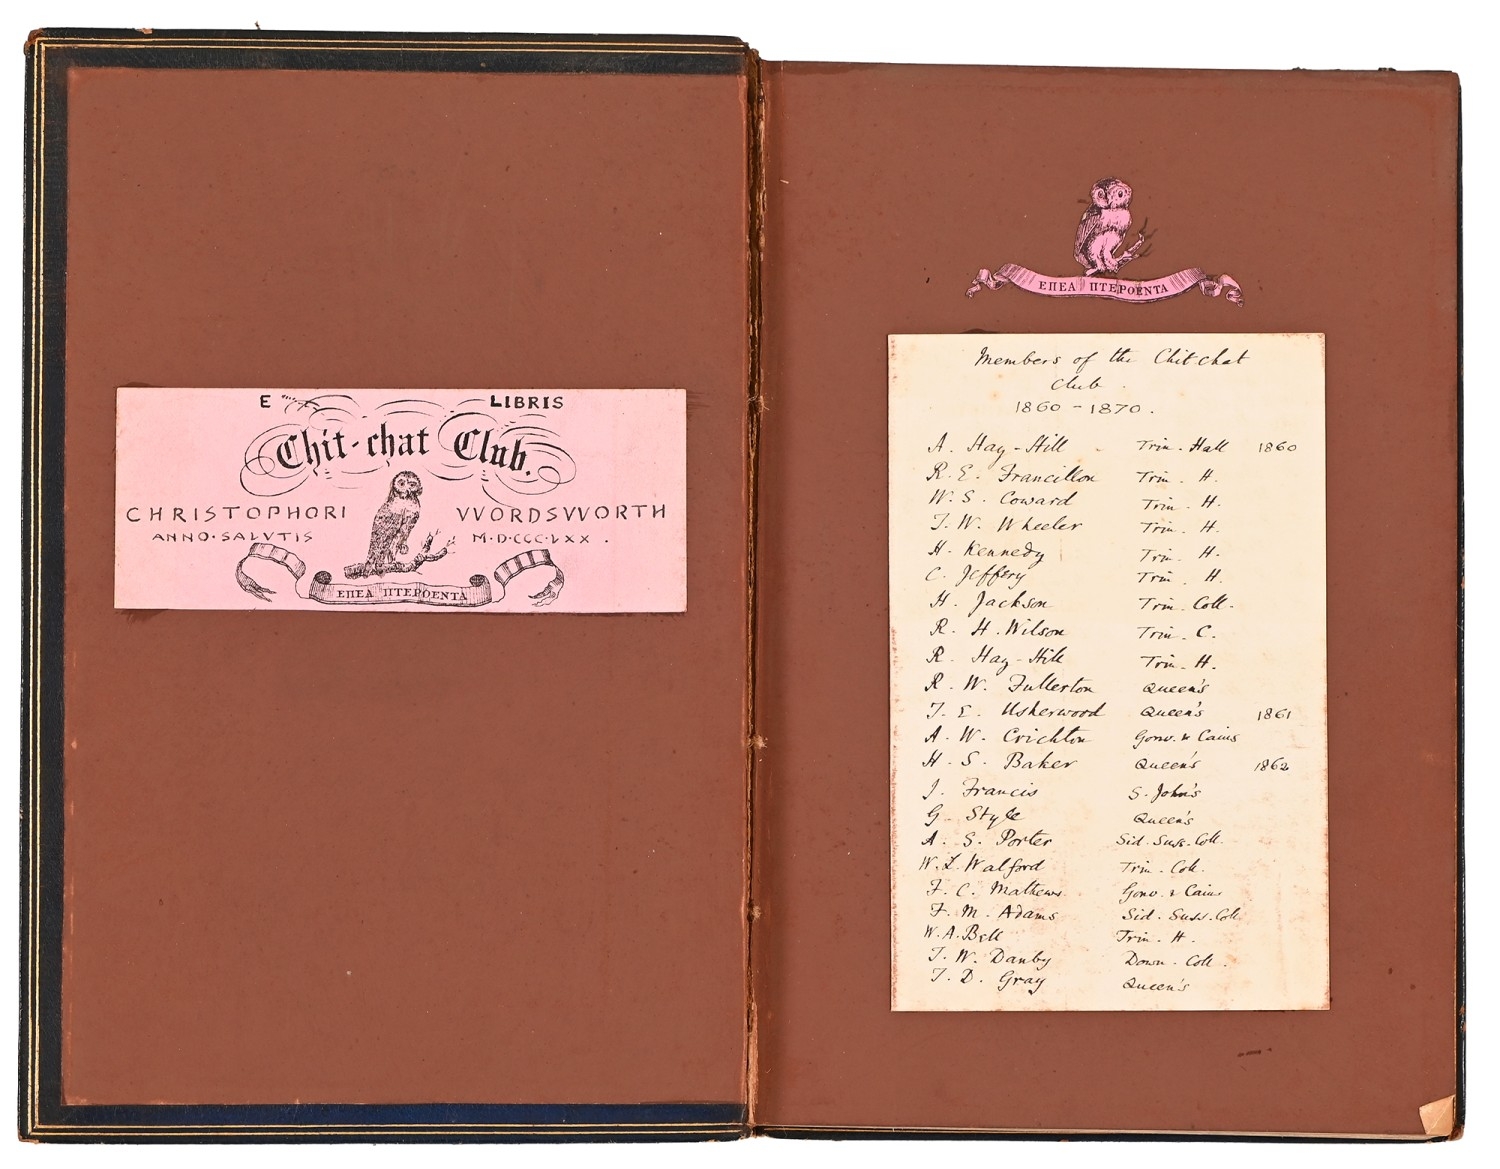 E LIBRIS
Chit-chat Club.
CHRISTOPHORI VVORDSVVORTH
ANNO·SALVTIS M·D·CCC·LXX.
ΕΠΕΑ ΠΤΕΡΟΕΝΤΑ
ΕΠΕΑ ΠΤΕΡΟΕΝΤΑ
Members of the Chitchat
Club.
1860-1870.
A. Hay-Hill - Trin. Hall 1860
R. E. Francillon Trin. H.
W. S. Coward Trin. H.
T. W. Wheeler Trin. H.
H. Kennedy Trin. H.
C. Jeffery Trin. H.
H. Jackson Trin. Coll.
R. H. Wilson Trin. C.
R. Hay-Hill Trin. H.
R. W. Fullerton Queen's
T. E. Usherwood Queen's 1861
A. W. Crichton Gonv. & Caius
H. S. Baker Queen's 1862
J. Francis S. John's
G. Style Queen's
A. S. Porter Sid. Suss. Coll.
W. L. Walford Trin. Coll.
F. C. Mathews Gonv. & Caius
F. M. Adams Sid. Suss. Coll
W. A. Bell Trin. H.
T. W. Danby Down. Coll.
T. D. Gray Queen's